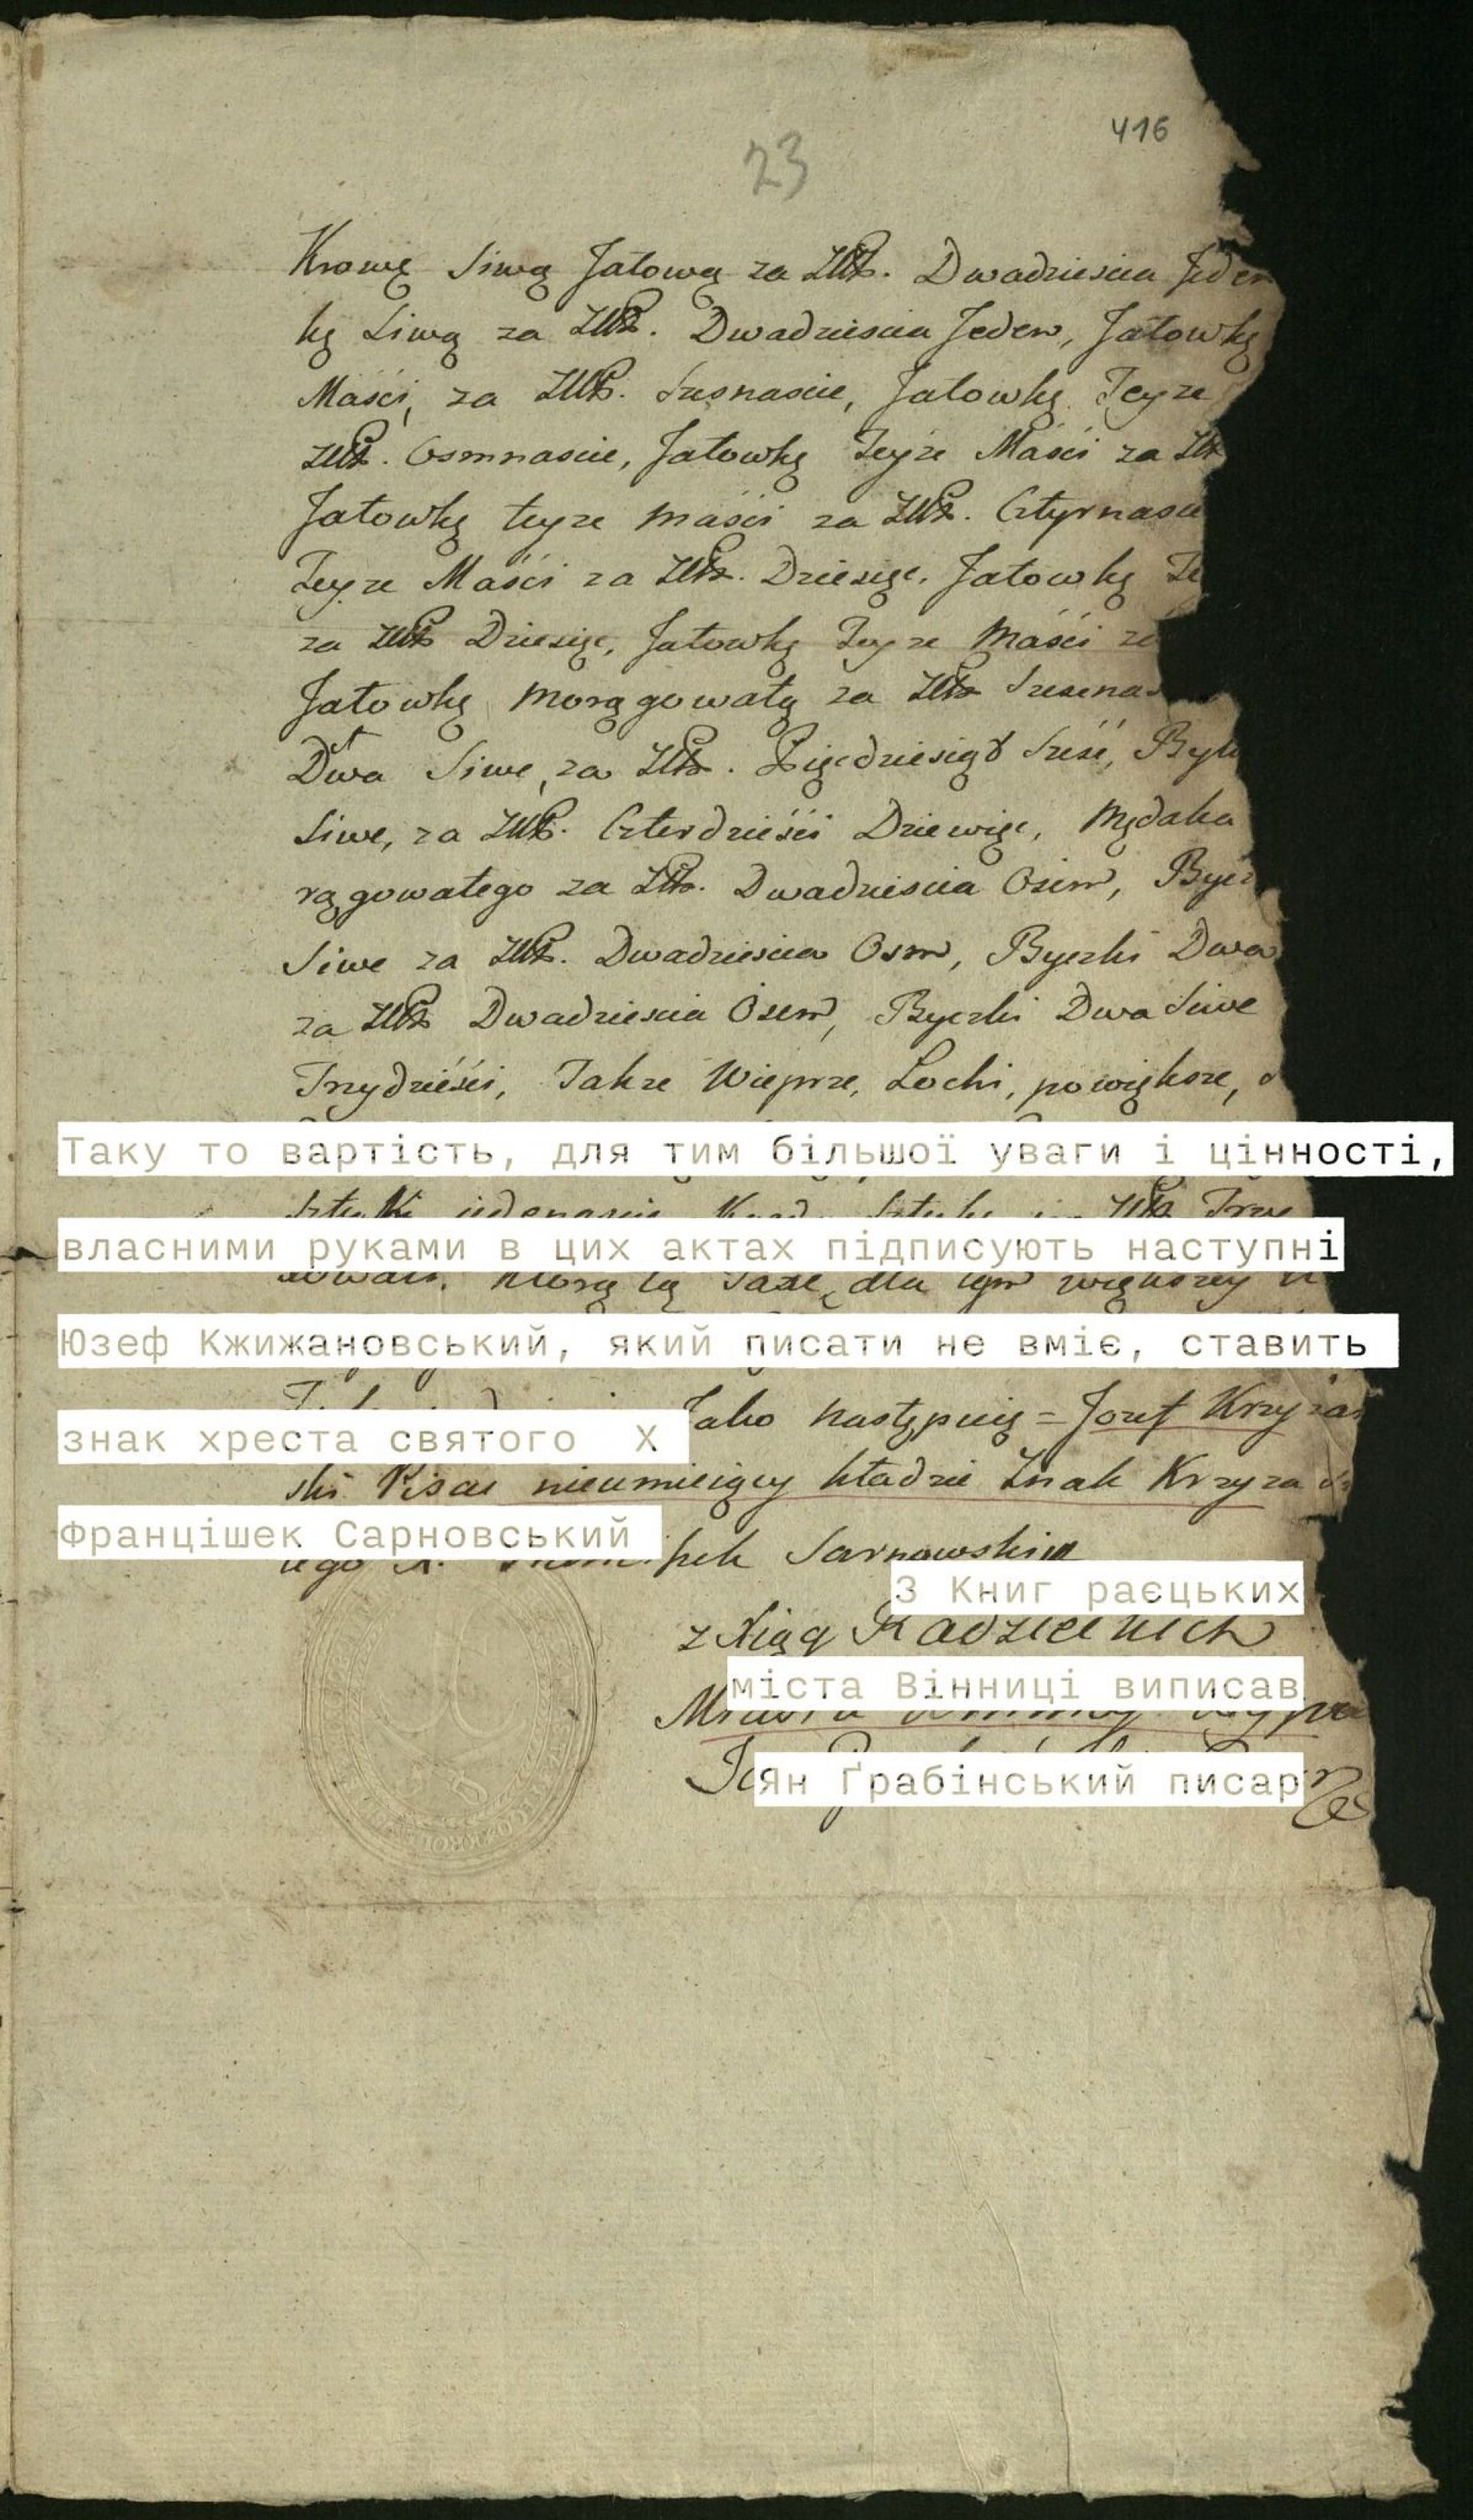 416
23
Krowę Siwą Jałową za ZłP. Dwadziescia Jeden
kę Siwą za ZłP. Dwadziescia Jeden, Jałowkę
Maści, za ZłP. Szesnascie, Jałowkę Teyze
ZłP. Osmnascie, Jałowkę Teyże Maści za Zł
Jałowkę teyze maści za ZłP. Cztyrnascie
Teyze Maści za ZłP. Dziesięc, Jałowkę Te
za ZłP Dziesięc, Jałowkę Teyze Maści za
Jałowkę Morągowatą za ZłP
Dwa Siwe, za ZłP. Pięcdziesiąt Sześć,
Siwe, za ZłP. Czterdzieści Dziewięc,
rągowatego za ZłP. Dwadziescia Osim,
Siwe za ZłP. Dwadziescia Osm, Byczki Dwa
za ZłP Dwadziescia Osem, Byczki Dwa Siwe
Trzydzieści, Takze Wieprze, Lochi, powiększe,
Таку то вартість, для тим більшої уваги і цінності,
Sztuki ZłP
власними руками в цих актах підписують наступні
dla tym większey
Юзеф Кжижановський, який писати не вміє, ставить
Jako następuią = Jozef Krzyżan
знак хреста святого X
ski Pisac nieumieiący kładzie Znak Krzyza
Францішек Сарновський
Sarnowski
З Книг раєцьких
z Xiąg Radzieckich
міста Вінниці виписав
Miasta
Ян Ґрабінський писар